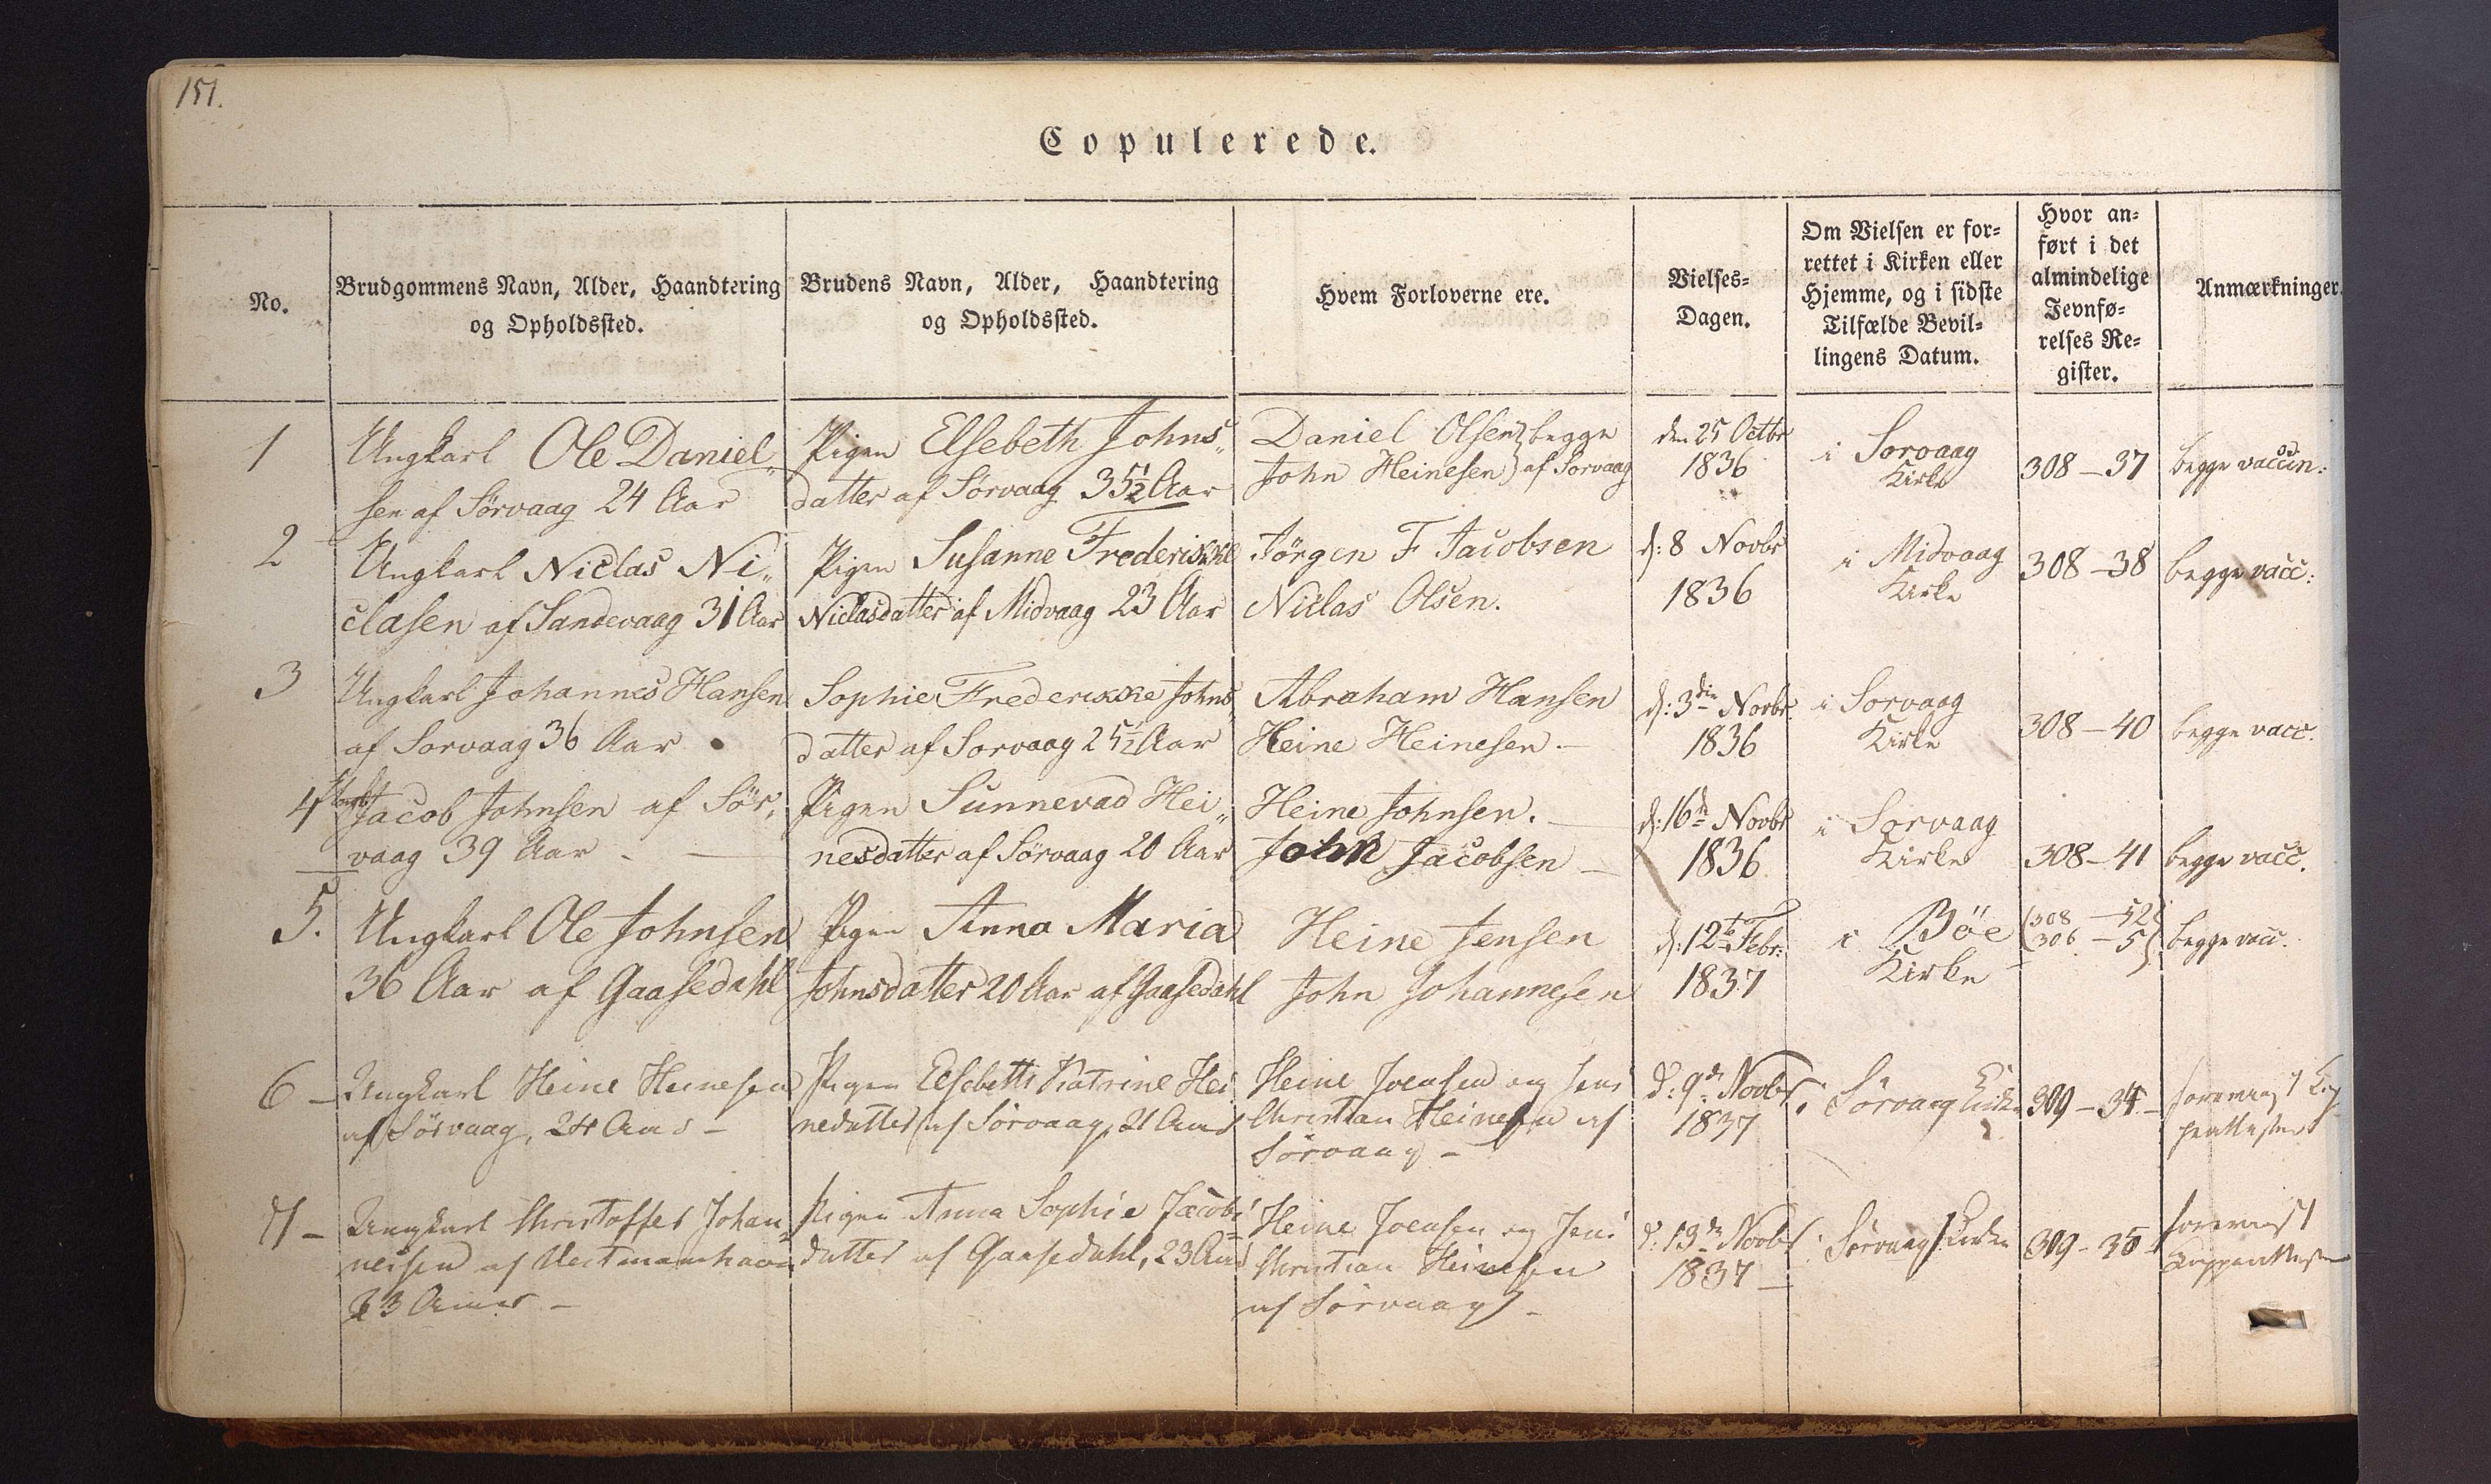 151.
Copulerede.
No.
Brudgommens Navn, Alder, Haandtering
og Opholdssted.
Brudens Navn, Alder, Haandtering
og Opholdssted.
Hvem Forloverne ere.
Vielses-
Dagen.
Om Vielsen er for-
rettet i Kirken eller
Hjemme, og i sidste
Tilfælde Bevil-
lingens Datum.
Hvor an-
ført i det
almindelige
Jevnfø-
relses Re-
gister.
Anmærkninger.
1
Ungkarl Ole Daniel„
sen af Sørvaag 24 Aar
Pigen Elsebeth Johns„
datter af Sørvaag 35½ Aar
Daniel Olsen } begge
John Heinesen } af Sorvaag
den 25 Octbr
1836
i Sorvaag
Kirke
308–37
begge vaccin:
2
Ungkarl Niclas Ni„
clasen af Sandevaag 31 Aar
Pigen Susanne Frederikke
Niclasdatter af Midvaag 23 Aar
Jörgen F Jacobsen
Niclas Olsen.
d: 8 Novbr
1836
i Midvaag
Kirke
308–38
begge vacc:
3
Ungkarl Johannes Hansen
af Sorvaag 36 Aar
Sophie Frederikke Johns„
datter af Sorvaag 25½ Aar
Abraham Hansen
Heine Heinesen.–
d: 3die Novbr.
1836
i Sorvaag
Kirke
308–40
begge vacc.
4
Ungk Jacob Johnsen af Sör„
vaag 39 Aar
Pigen Sunnevad Hei„
nesdatter af Sörvaag 20 Aar
Heine Johnsen.
John Jacobsen –
d: 16de Novbr
1836
i Sorvaag
Kirke
308–41
begge vacc.
5.
Ungkarl Ole Johnsen
36 Aar af Gaasedahl
Pigen Anna Maria
Johnsdatter 20 Aar af Gaasedahl
Heine Jensen
John Johannesen
d: 12te Febr:
1837
i Böe
Kirke
(308 – 52)
(306 – 5)
begge vacc.
6 –
Ungkarl Heine Heinesen
af Sörvaag, 24 Aar –
Pigen Elsebeth Katrine Hei
nedatter af Sörvaag, 21 Aar
Heine Joensen og Jens
Christian Heinesen af
Sörvaag –
d: 9de Novbr
1837
i Sörvaag Kirke
309–34 –
forevist Kop
peattester
7 –
Ungkarl Christoffer Johan
nessen af Vestmannhavn
23 Aar –
Pigen Anna Sophie Jacobs
datter af Gaasedahl, 23 Aar
Heine Joensen og Jens
Christian Heinesen
af Sörvaag –
d: 19de Novbr
1837 –
i Sörvaag Kirke
309–35
forevist
Koppeattester